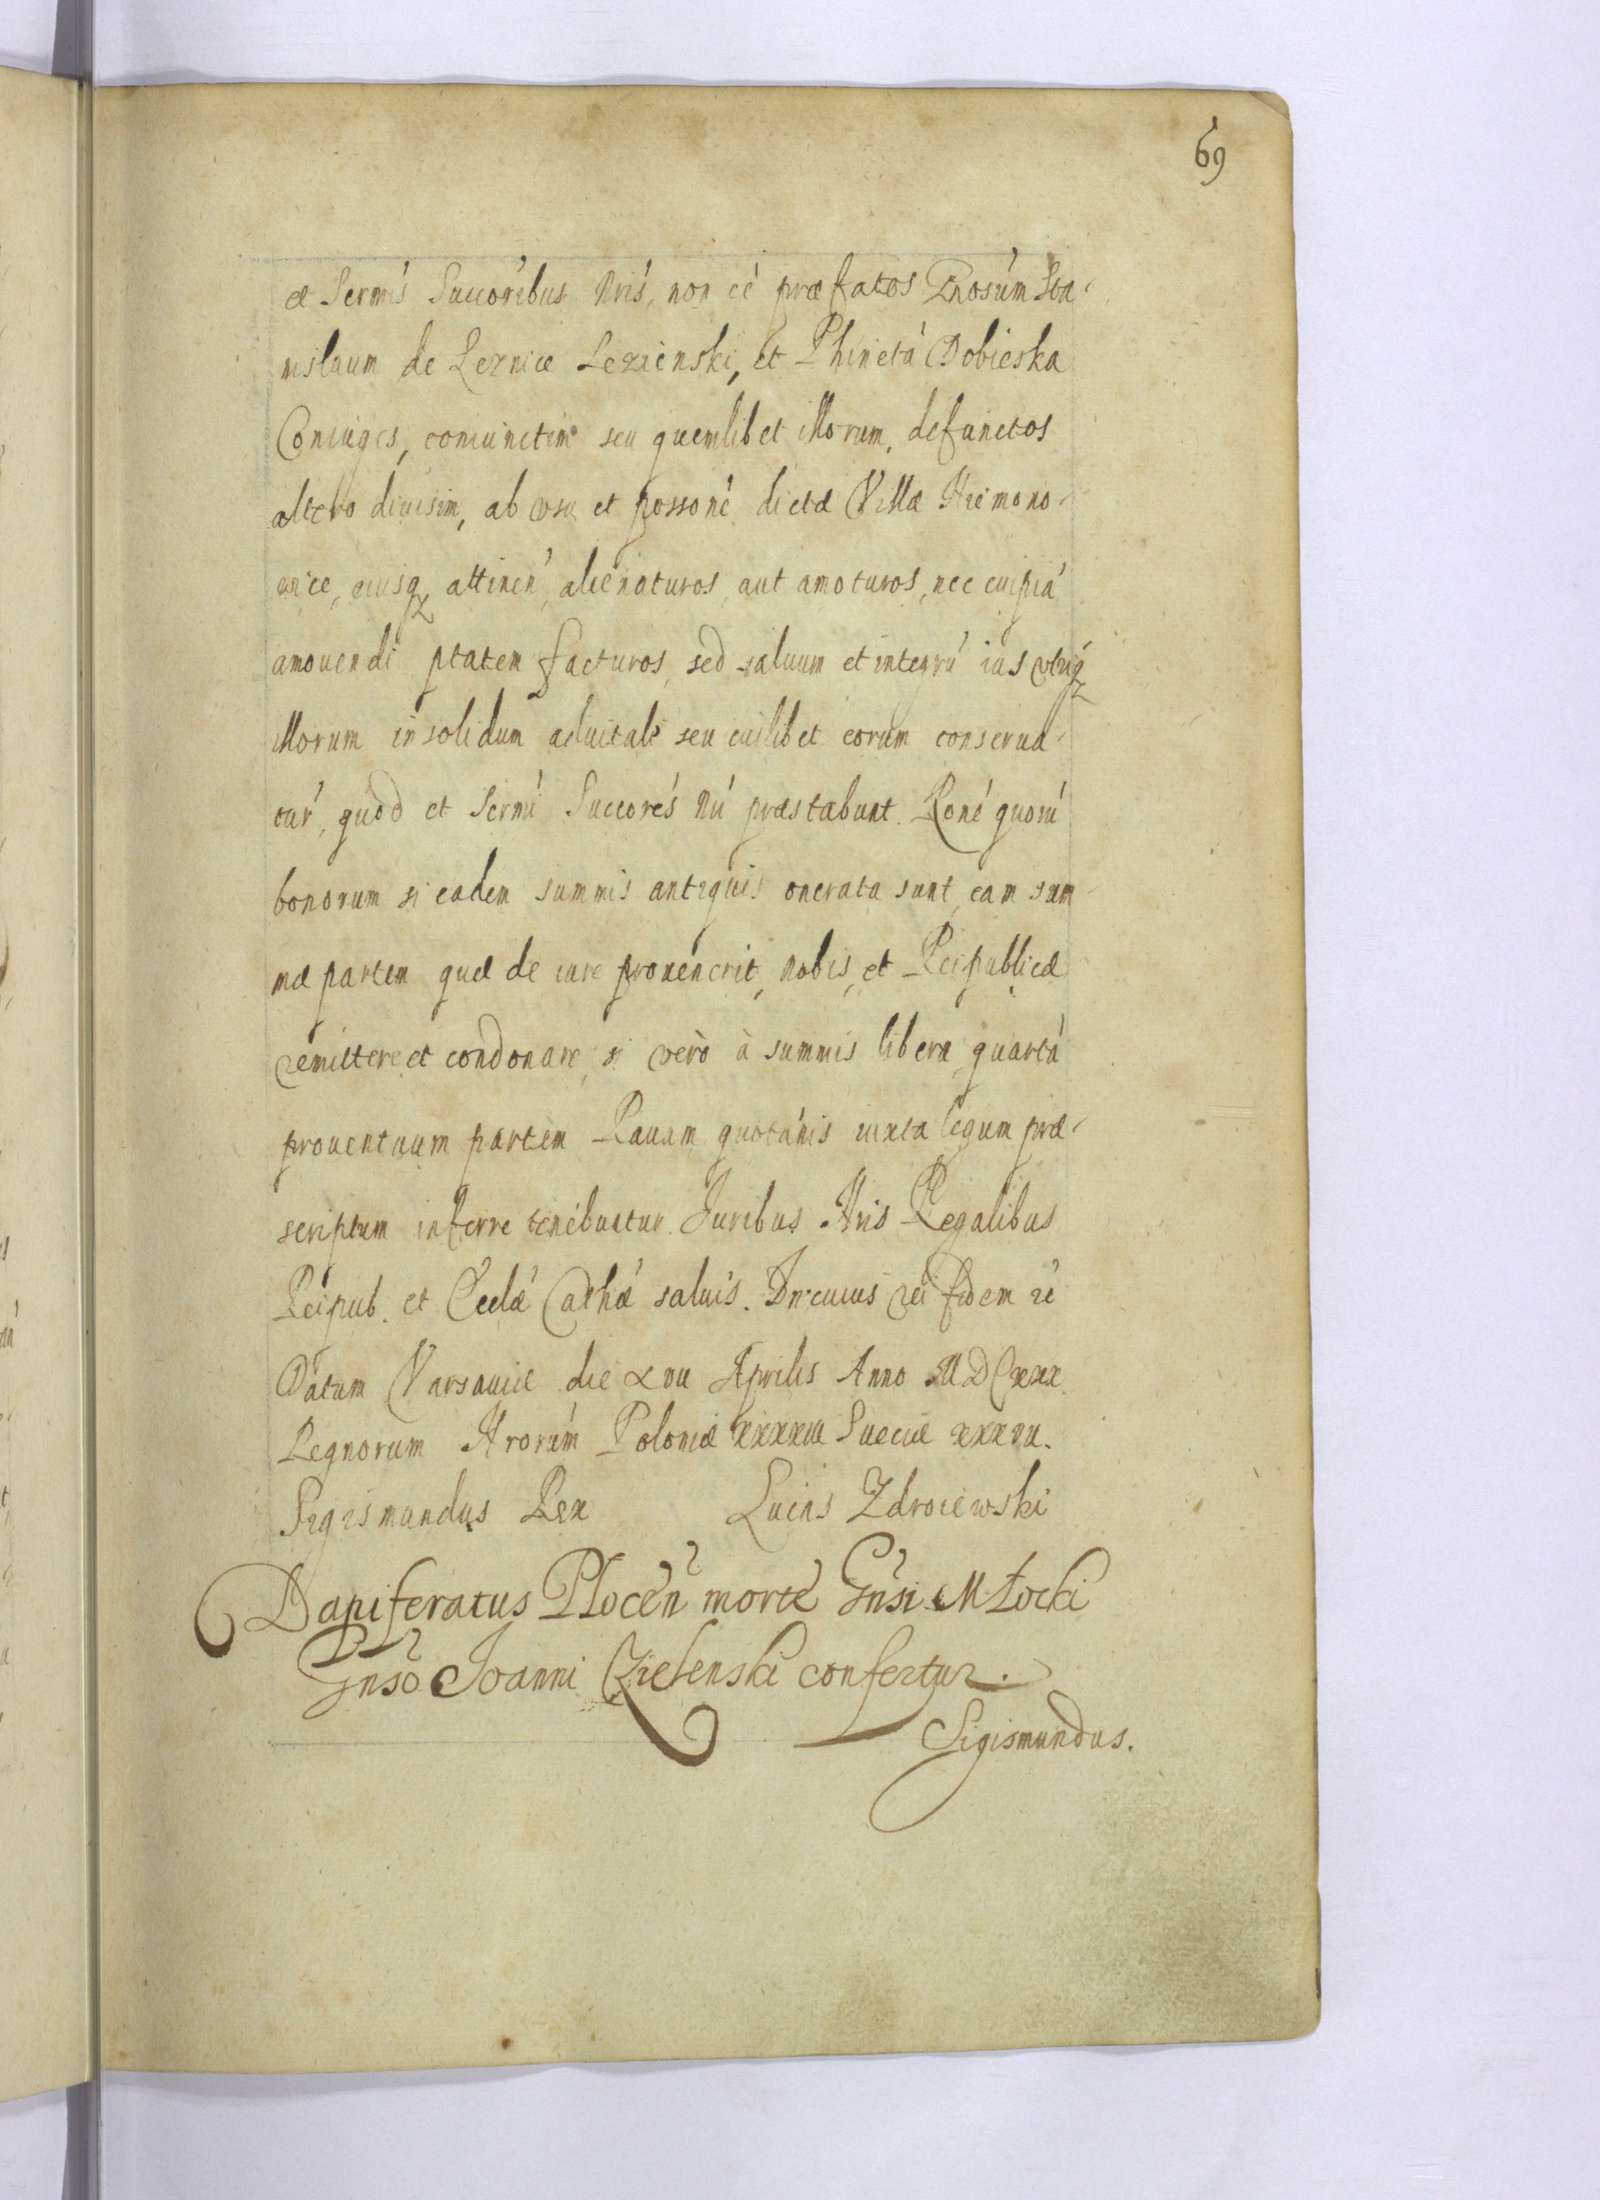 69
et Sermis Succoribus Nris, non eē præfatos Gnosum Sta-
nislaum de Leznice Lezienski, et Phinetā Dobieska
Coniuges, coniunctim seu quemlibet illorum, defunctos
altero diuisim, ab vsu et possone dictæ Villæ
eiusq attinen, alienaturos, aut amoturos, nec cuipiā
amouendi ptatem facturos, sed saluum et integrū ius
illorum in solidum aduitale seu cuilibet eorum conserua-
tur, quod et Sermi Succores Nri præstabunt. Rone quorū
bonorum si eadem summis antiquis onerata sunt, eam sum
mæ partem quæ de iure prouenerit, nobis, et Reipublicæ
remittere et condonare, si verò à summis libera quartā
prouentuum partem Rauam quotānis iuxta legum præ-
scriptum inferre tenebuntur. Juribus Nris Regalibus
Reipub. et Ecclæ Cathæ saluis. In cuius rei fidem
Datum Varsauiæ die xvii Aprilis Anno MDCxxx
Regnorum Nrorum Poloniæ xxxxiii Sueciæ xxxvii.
Sigismundus Rex Lucas Zdroiewski
Dapiferatus Plocen morte Gnsi Młocki
Gnso Joanni Zielenski confertur.
Sigismundus.